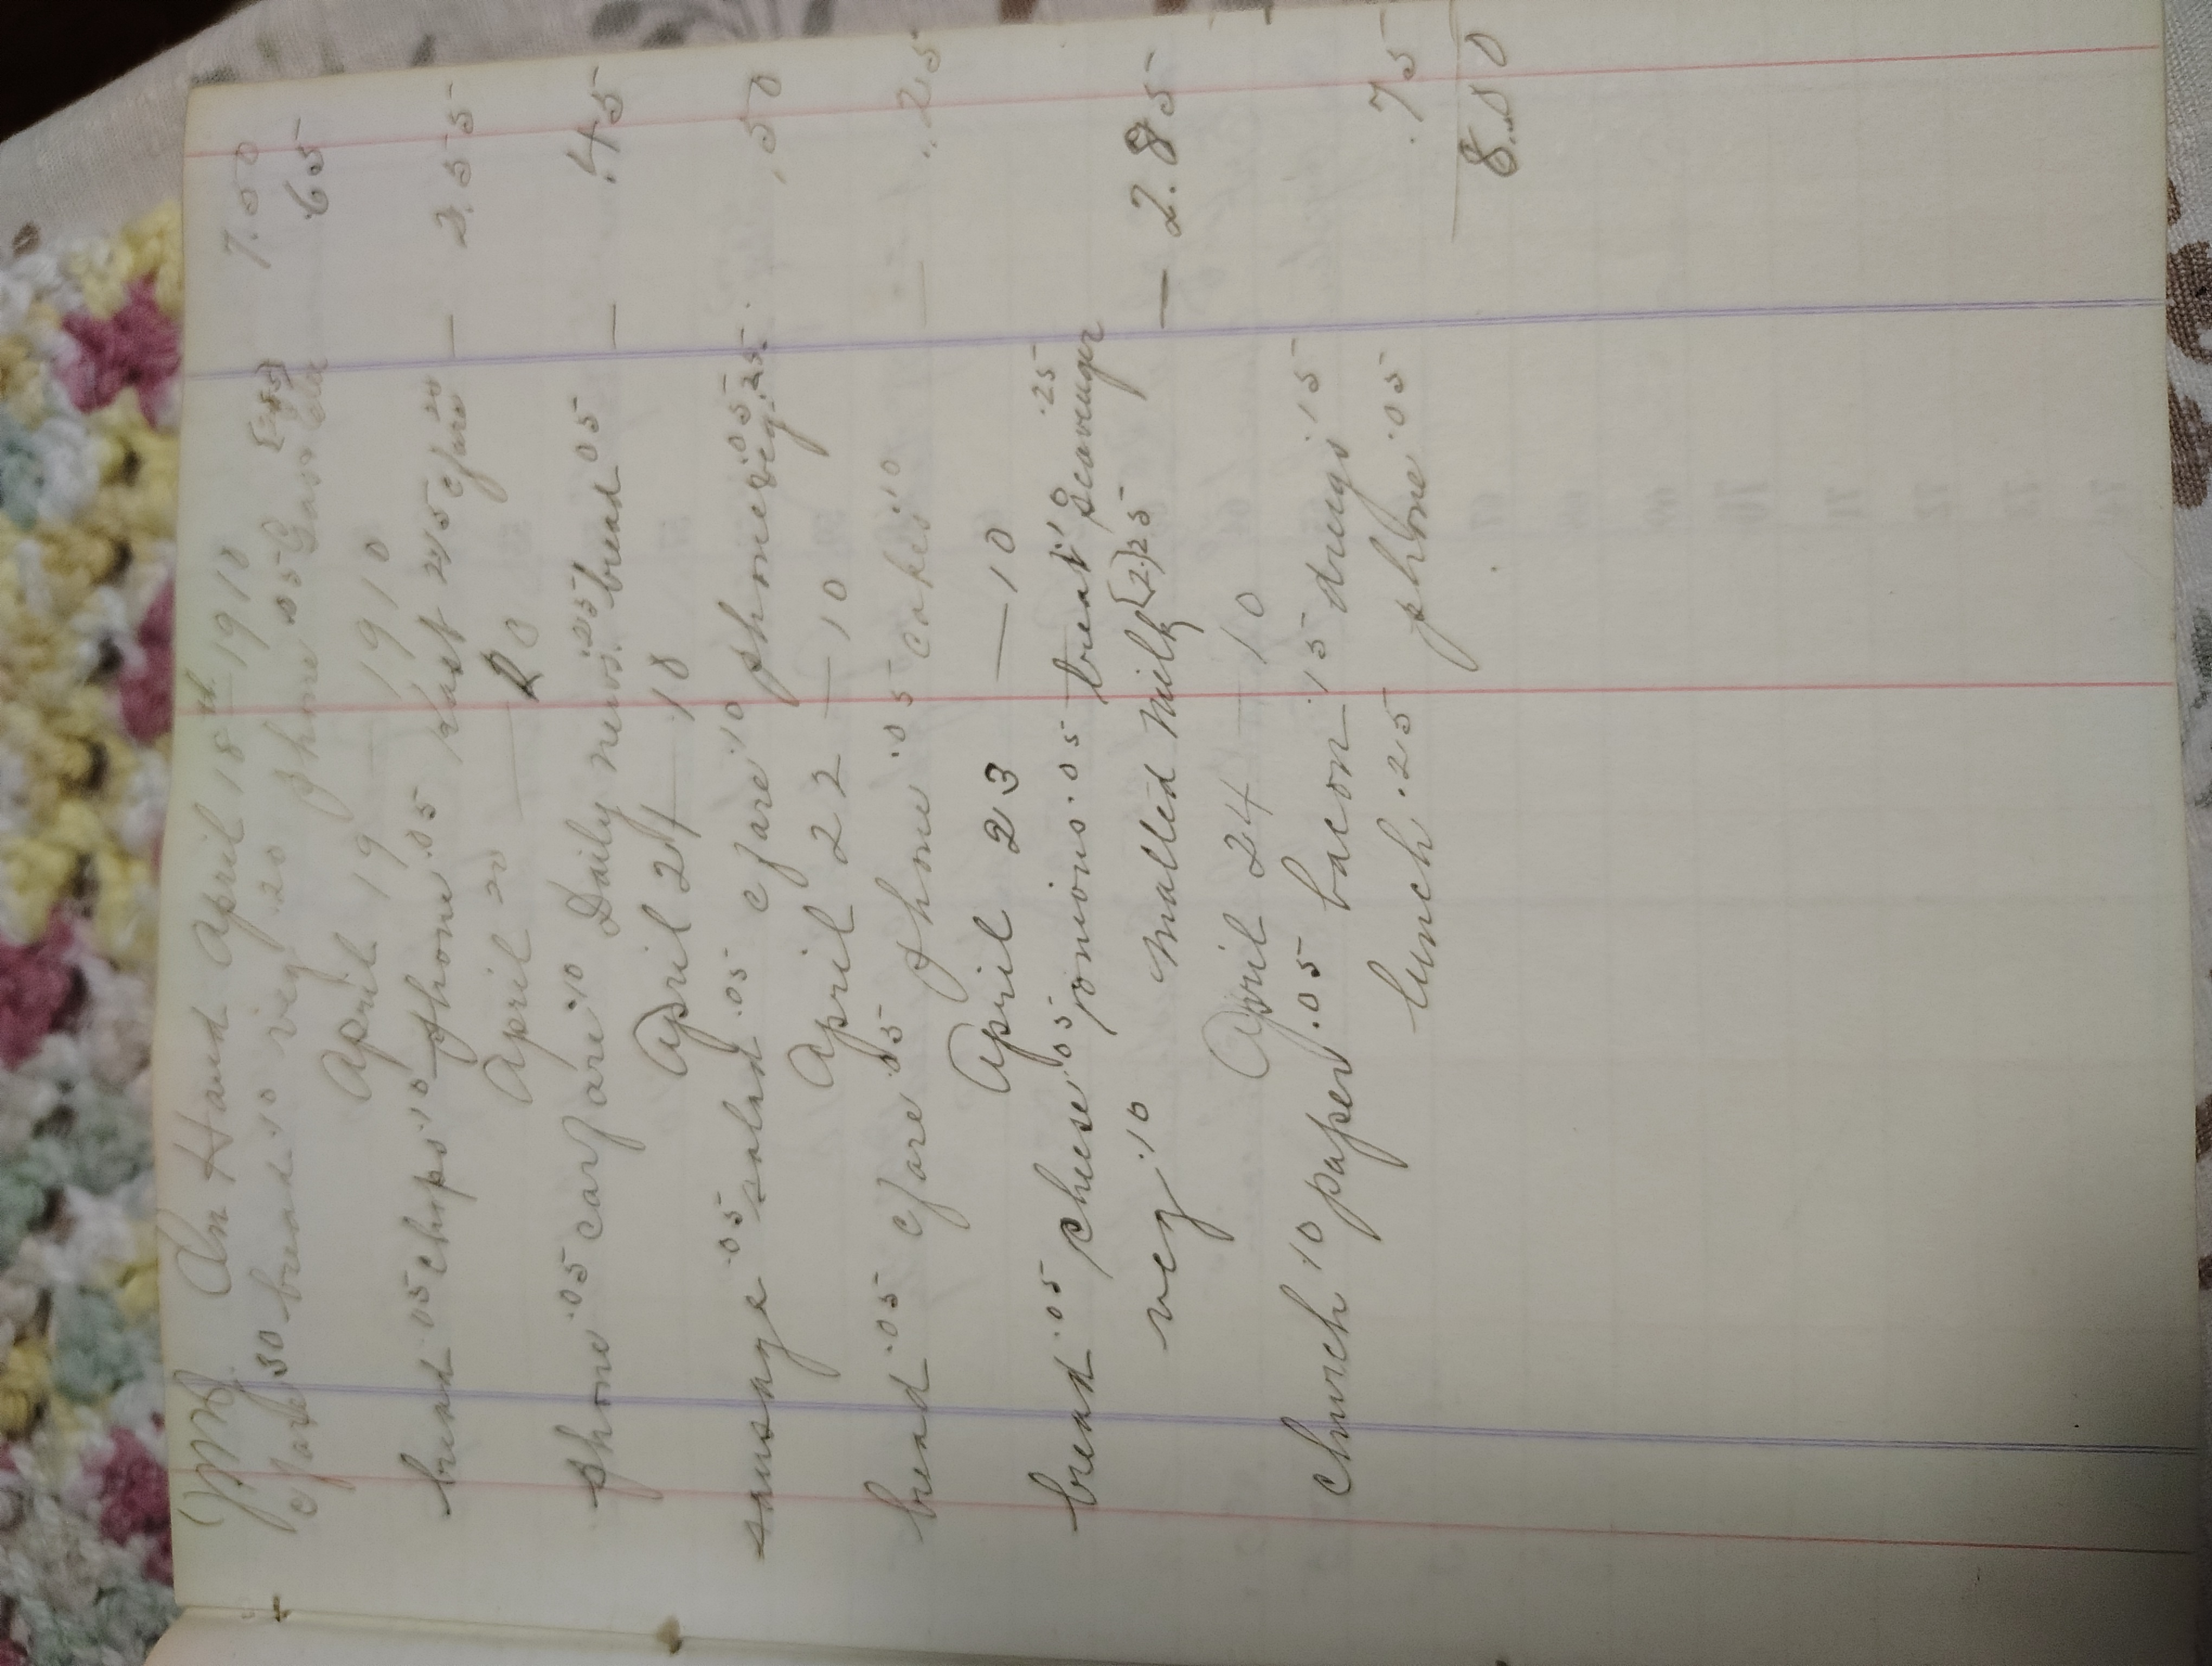 On Hand April 18th 1910 7.50
cfare 30 bread .10 veg .20 phone .05 65
April 19 — 1910
bread .05 chops .10 phone .05 cfare 20 — 2.55
April 20 — 10
phone .05 carfare .10 Daily news .25 bread .05 — .45
April 21 — 10
sausage .05 salad .05 cfare .10 phone .05 veg .25 .50
April 22 — 10
bread .05 cfare .05 phone .05 cakes .10 — .25
April 23 — 10
bread .05 cheese .05 onions .05 .10 scavenger .25
veg .10 Malled Milk [2.25 — 2.85
April 24 — 10
church .10 paper .05 bacon .15 drugs .15
lunch .25 phone .05 .75
8.00